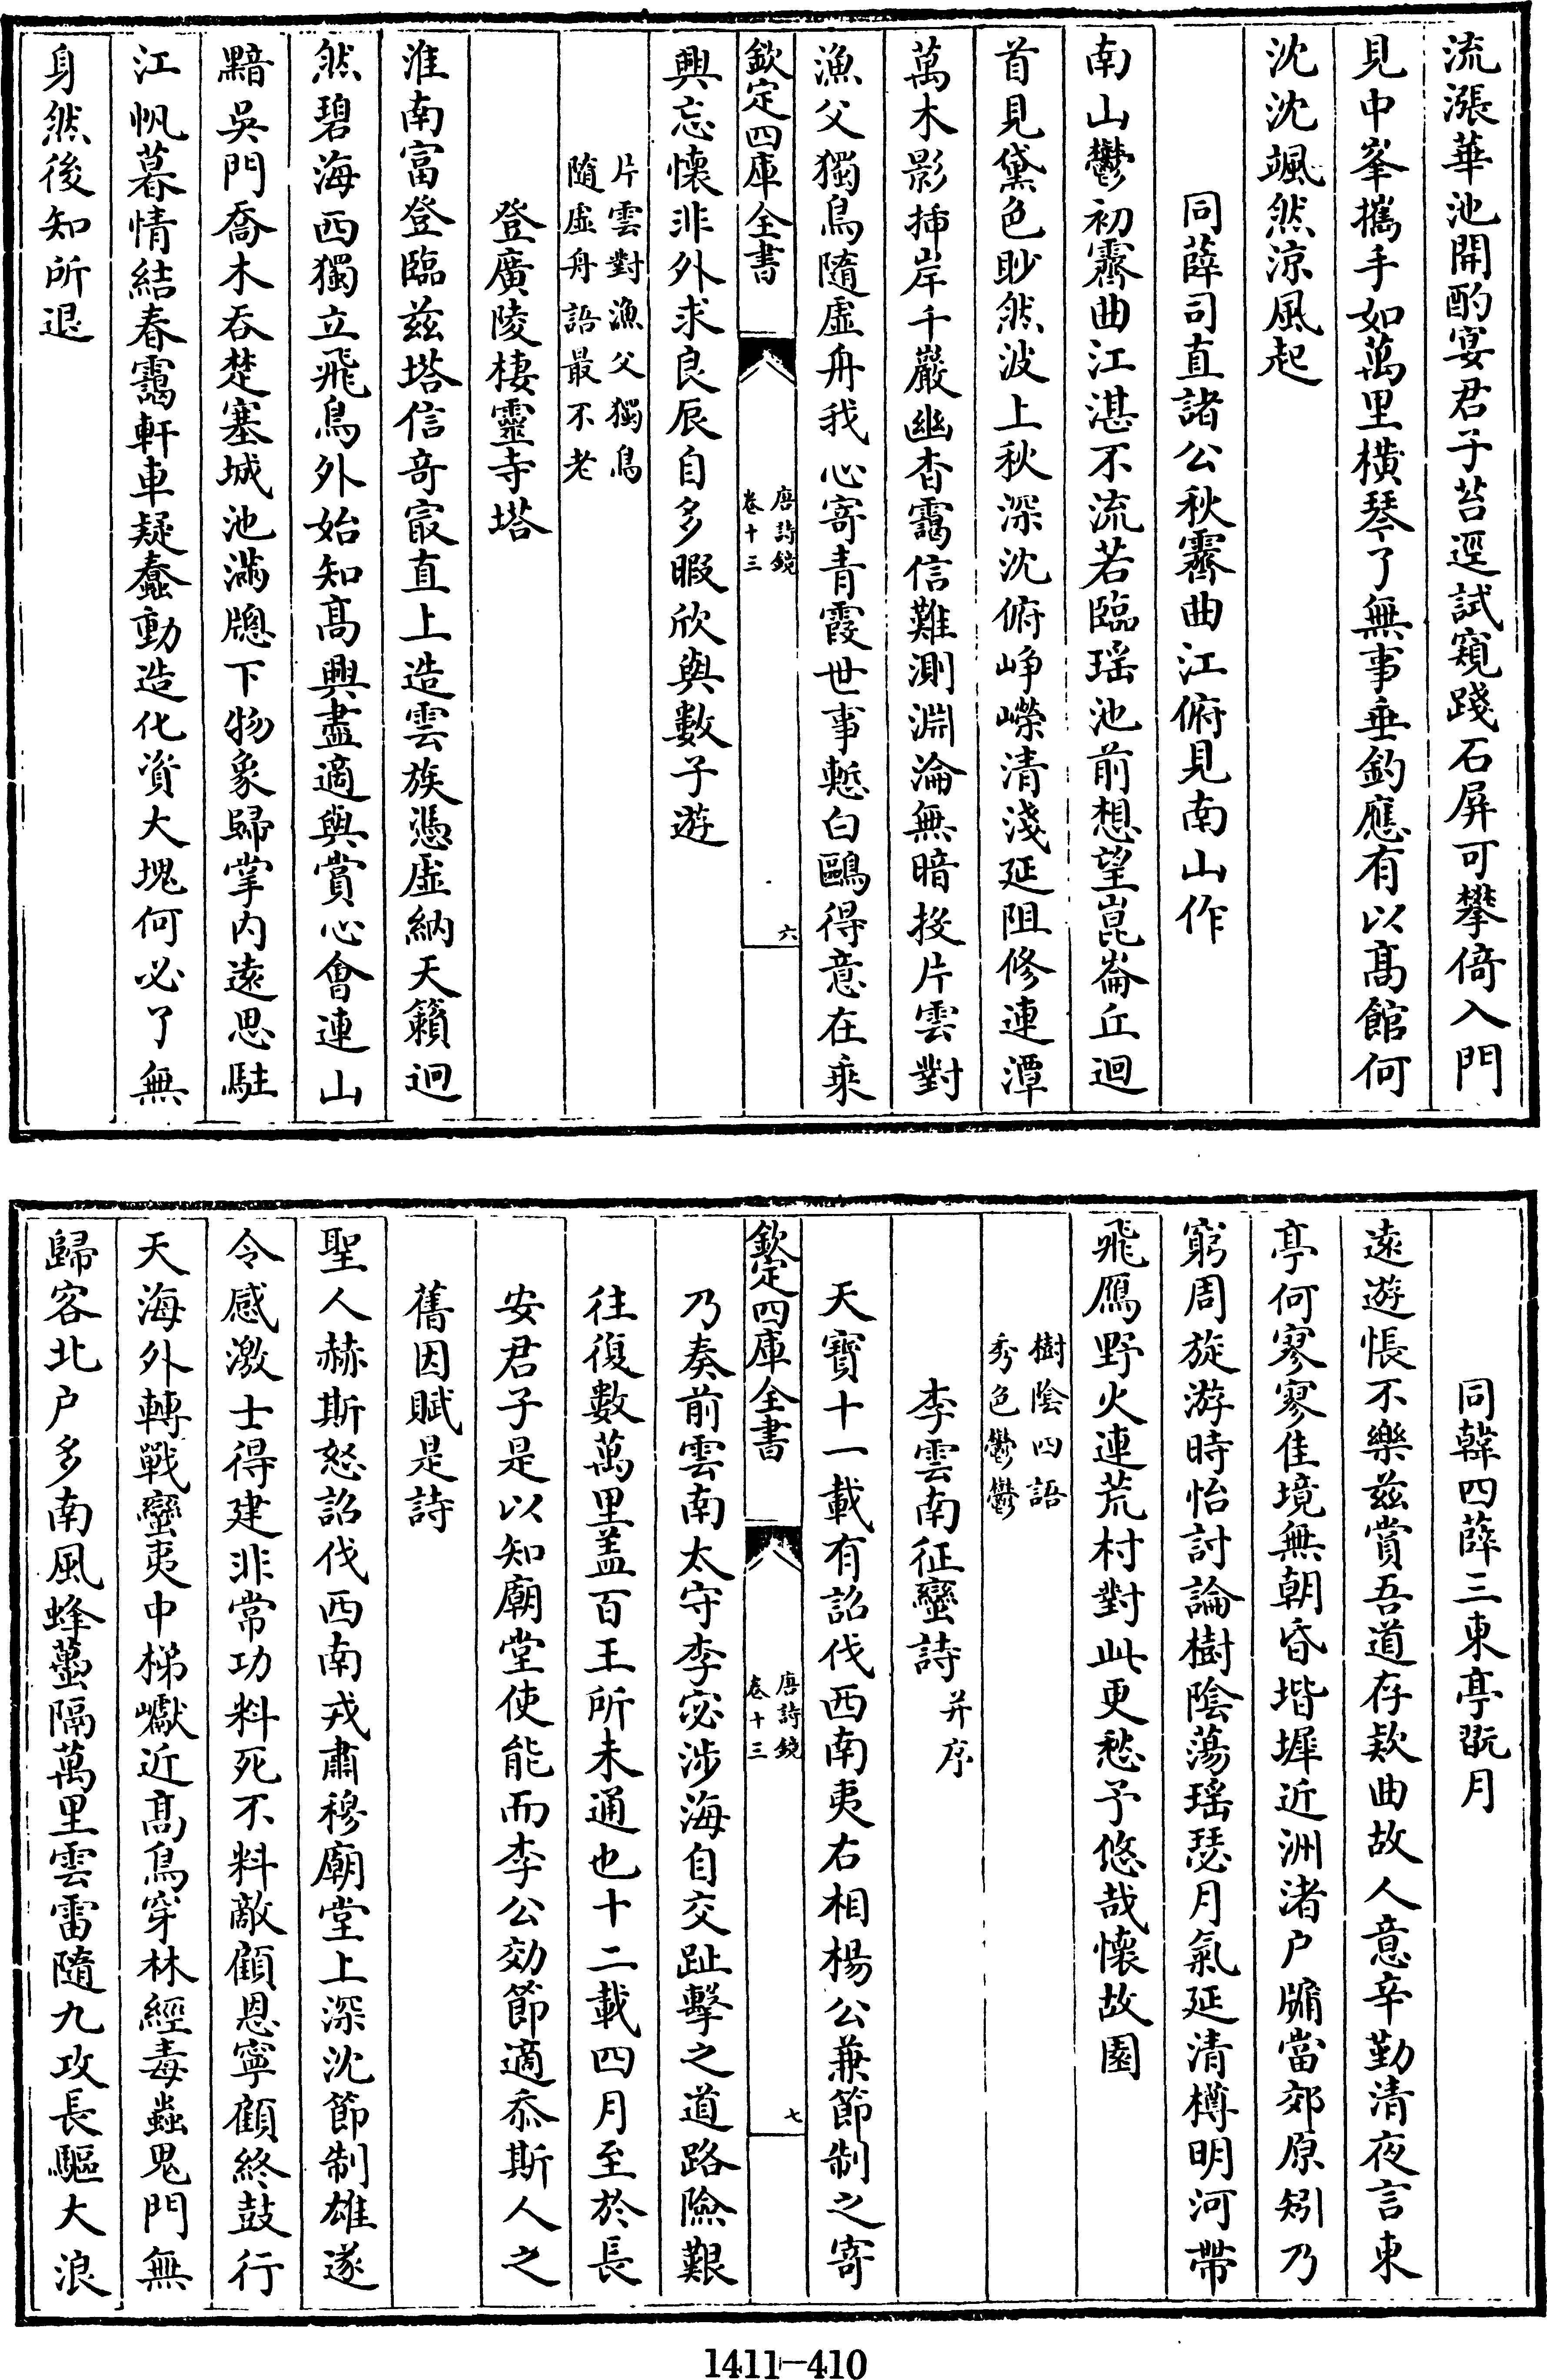 流漲華池開酌宴君子苔逕試窺踐石屏可攀倚入門
見中峯攜手如萬里橫琴了無事垂釣應有以高館何
沈沈颯然涼風起
同薛司直諸公秋霽曲江俯見南山作
南山鬱初霽曲江湛不流若臨瑤池前想望崑崙丘迴
首見黛色眇然波上秋深沈俯崢嶸清淺延阻修連潭
萬木影插岸千巖幽杳靄信難測淵淪無暗投片雲對
漁父獨鳥隨虛舟我心寄青霞世事慙白鷗得意在乘
欽定四庫全書
唐詩鏡
卷十三
六
興忘懷非外求良辰自多暇欣與數子遊
片雲對漁父獨鳥
隨虛舟語最不老
登廣陵棲靈寺塔
淮南富登臨茲塔信奇㝡直上造雲族憑虛納天籟迥
然碧海西獨立飛鳥外始知高興盡適與賞心會連山
黯吳門喬木吞楚塞城池滿牎下物象歸掌內遠思駐
江帆暮情結春靄軒車疑蠢動造化資大塊何必了無
身然後知所退
同韓四薛三東亭翫月
遠遊悵不樂茲賞吾道存欵曲故人意辛勤清夜言東
亭何寥寥佳境無朝昏堦墀近洲渚户牖當郊原矧乃
窮周旋游時怡討論樹陰蕩瑤瑟月氣延清樽明河帶
飛鴈野火連荒村對此更愁予悠哉懷故園
樹陰四語
秀色鬱鬱
李雲南征蠻詩并序
天寶十一載有詔伐西南夷右相楊公兼節制之寄
乃奏前雲南太守李宓涉海自交趾擊之道路險艱
往復數萬里蓋百王所未通也十二載四月至於長
安君子是以知廟堂使能而李公効節適忝斯人之
舊因賦是詩
欽定四庫全書
唐詩鏡
卷十三
七
聖人赫斯怒詔伐西南戎肅穆廟堂上深沈節制雄遂
令感激士得建非常功料死不料敵顧恩寧顧終鼓行
天海外轉戰蠻夷中梯巘近高鳥穿林經毒蟲鬼門無
歸客北户多南風蜂蠆隔萬里雲雷隨九攻長驅大浪
1411—410